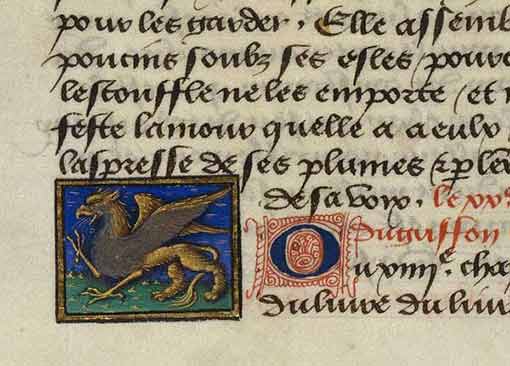 pour les garder. Elle assemb
poucins soubz ses esles / pour
lescouffle ne les emporte / et
feste lamour quelle a a eulx
laspresse de ses plumes / & p le
de sa voix. le xv
du griffon
Du xiiiie. cha
du livre du liur